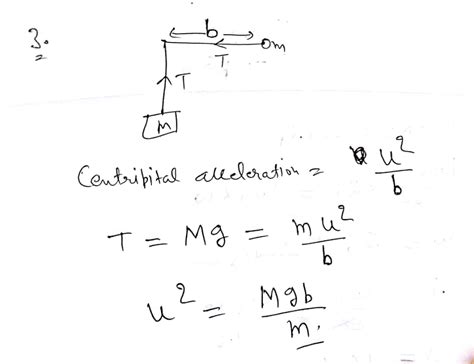 3.
b
m
T
T
M
Centripital acceleration = u²/b
T = Mg = mu²/b
u² = Mgb/m.